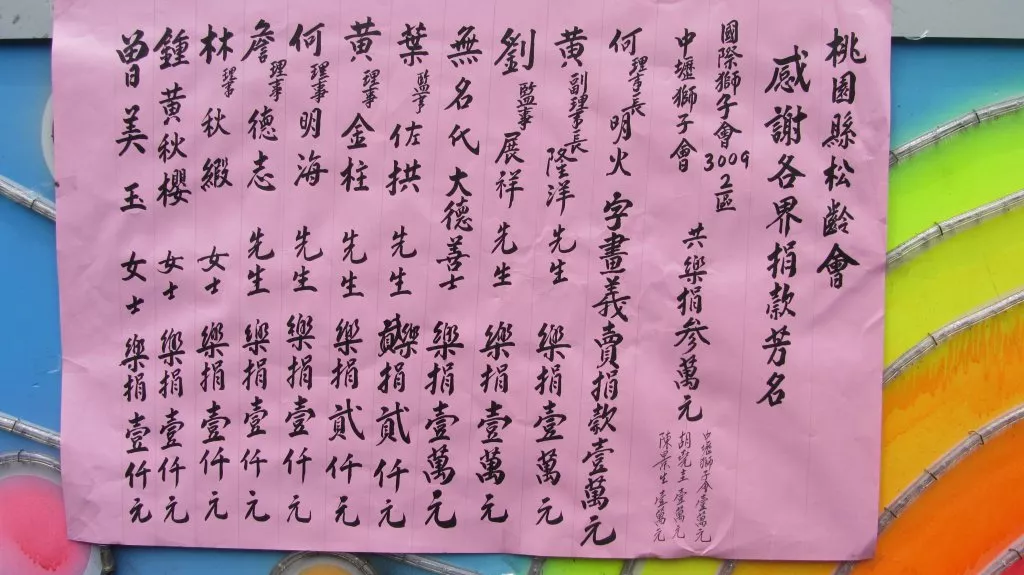 桃園縣松齡會
感謝各界捐款芳名
國際獅子會3009 2區
中壢獅子會
共樂捐參萬元
中壢獅子會壹萬元
壹萬元
陳景生壹萬元
何理事長明火字畫義賣捐款壹萬元
黃副理事長隆洋先生樂捐壹萬元
劉監事展祥先生樂捐壹萬元
無名氏大德善士樂捐壹萬元
葉監事佐拱先生樂捐貳仟元
黃理事金柱先生樂捐貳仟元
何理事明海先生樂捐壹仟元
詹理事德志先生樂捐壹仟元
林理事秋緞女士樂捐壹仟元
鍾黃秋櫻女士樂捐壹仟元
曾美玉女士樂捐壹仟元